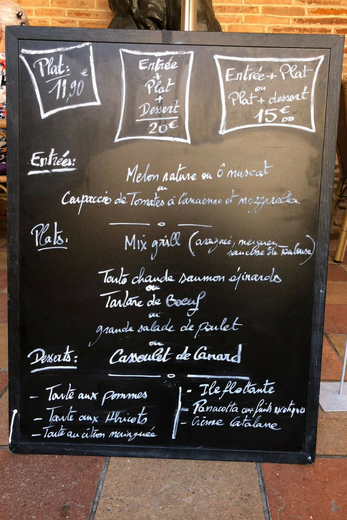 Plat:
11,90€
Entrée
+
Plat
+
Dessert
20€
Entrée + Plat
ou
Plat + dessert
15€00
Entrées:
Melon nature ou Ô muscat
ou
Carpaccio de Tomates à l'ananas et mozzarella
Plats:
Mix grill (araignée, merguez,
saucisse de Toulouse)
Tarte chaude saumon épinards
ou
Tartare de Boeuf
ou
grande salade de poulet
ou
Cassoulet de Canard
Desserts:
- Tarte aux pommes
- Tarte aux Abricots
- Tarte au citron meringuée
- Ile flottante
- Panacotta aux fruits exotiques
- Crème Catalane